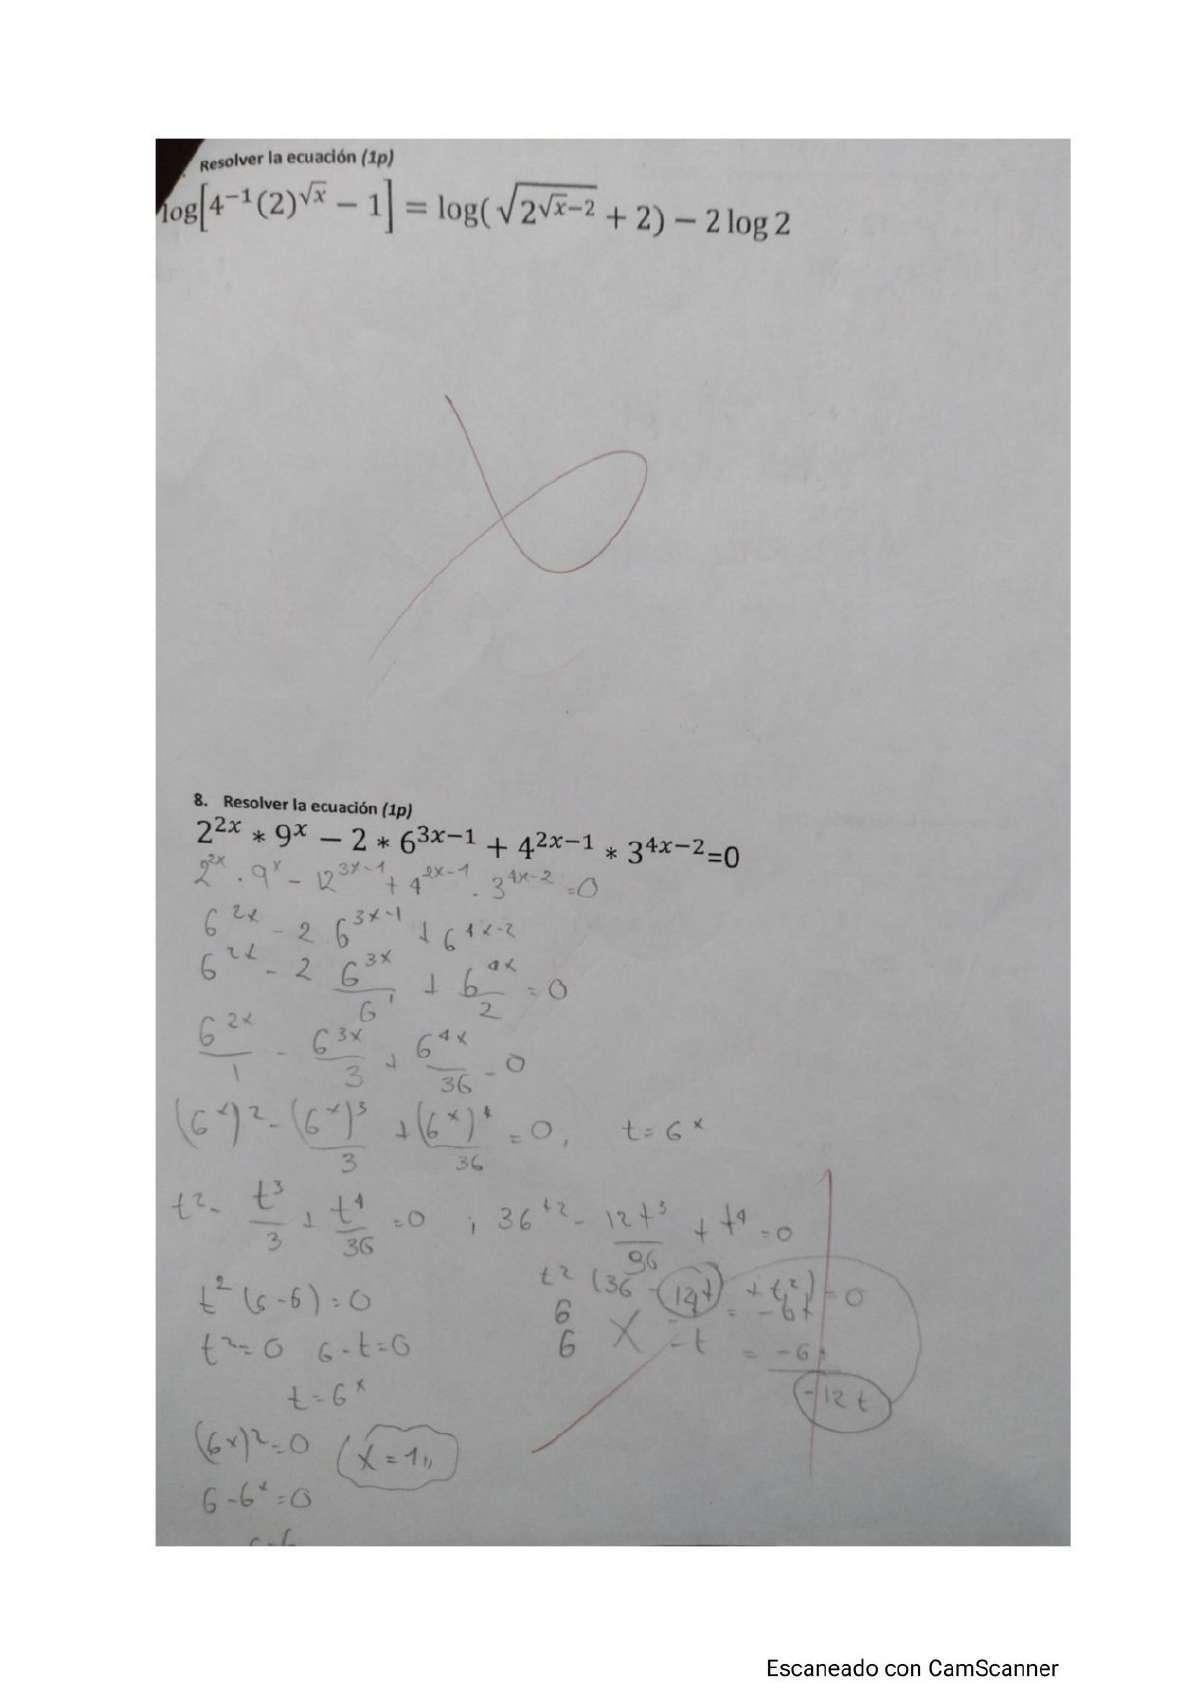 Resolver la ecuación (1p)
log[4⁻¹(2)^√x − 1] = log(√(2^(√x−2)) + 2) − 2 log 2
8. Resolver la ecuación (1p)
2^2x * 9^x − 2 * 6^3x−1 + 4^2x−1 * 3^4x−2=0
2^2x . 9^x − 12^3x−1 + 4^2x−1 . 3^4x−2 =0
6^2x − 2 6^3x−1 + 6^4x−2
6^2x − 2 6^3x/6^1 + 6^4x/2 = 0
6^2x/1 − 6^3x/3 + 6^4x/36 = 0
(6^x)^2 − (6^x)^3/3 + (6^x)^4/36 = 0, t = 6^x
t^2 − t^3/3 + t^4/36 = 0 ; 36t^2 − 12t^3/36 + t^4 = 0
t^2 (36 − 12t + t^2) = 0
t^2 (6-6) = 0
6 −t = −6t
t^2 = 0 6-t=0
6 −t = −6
t = 6^x
−12t
(6^x)^2 = 0 x = 1,,
6-6^x = 0
Escaneado con CamScanner